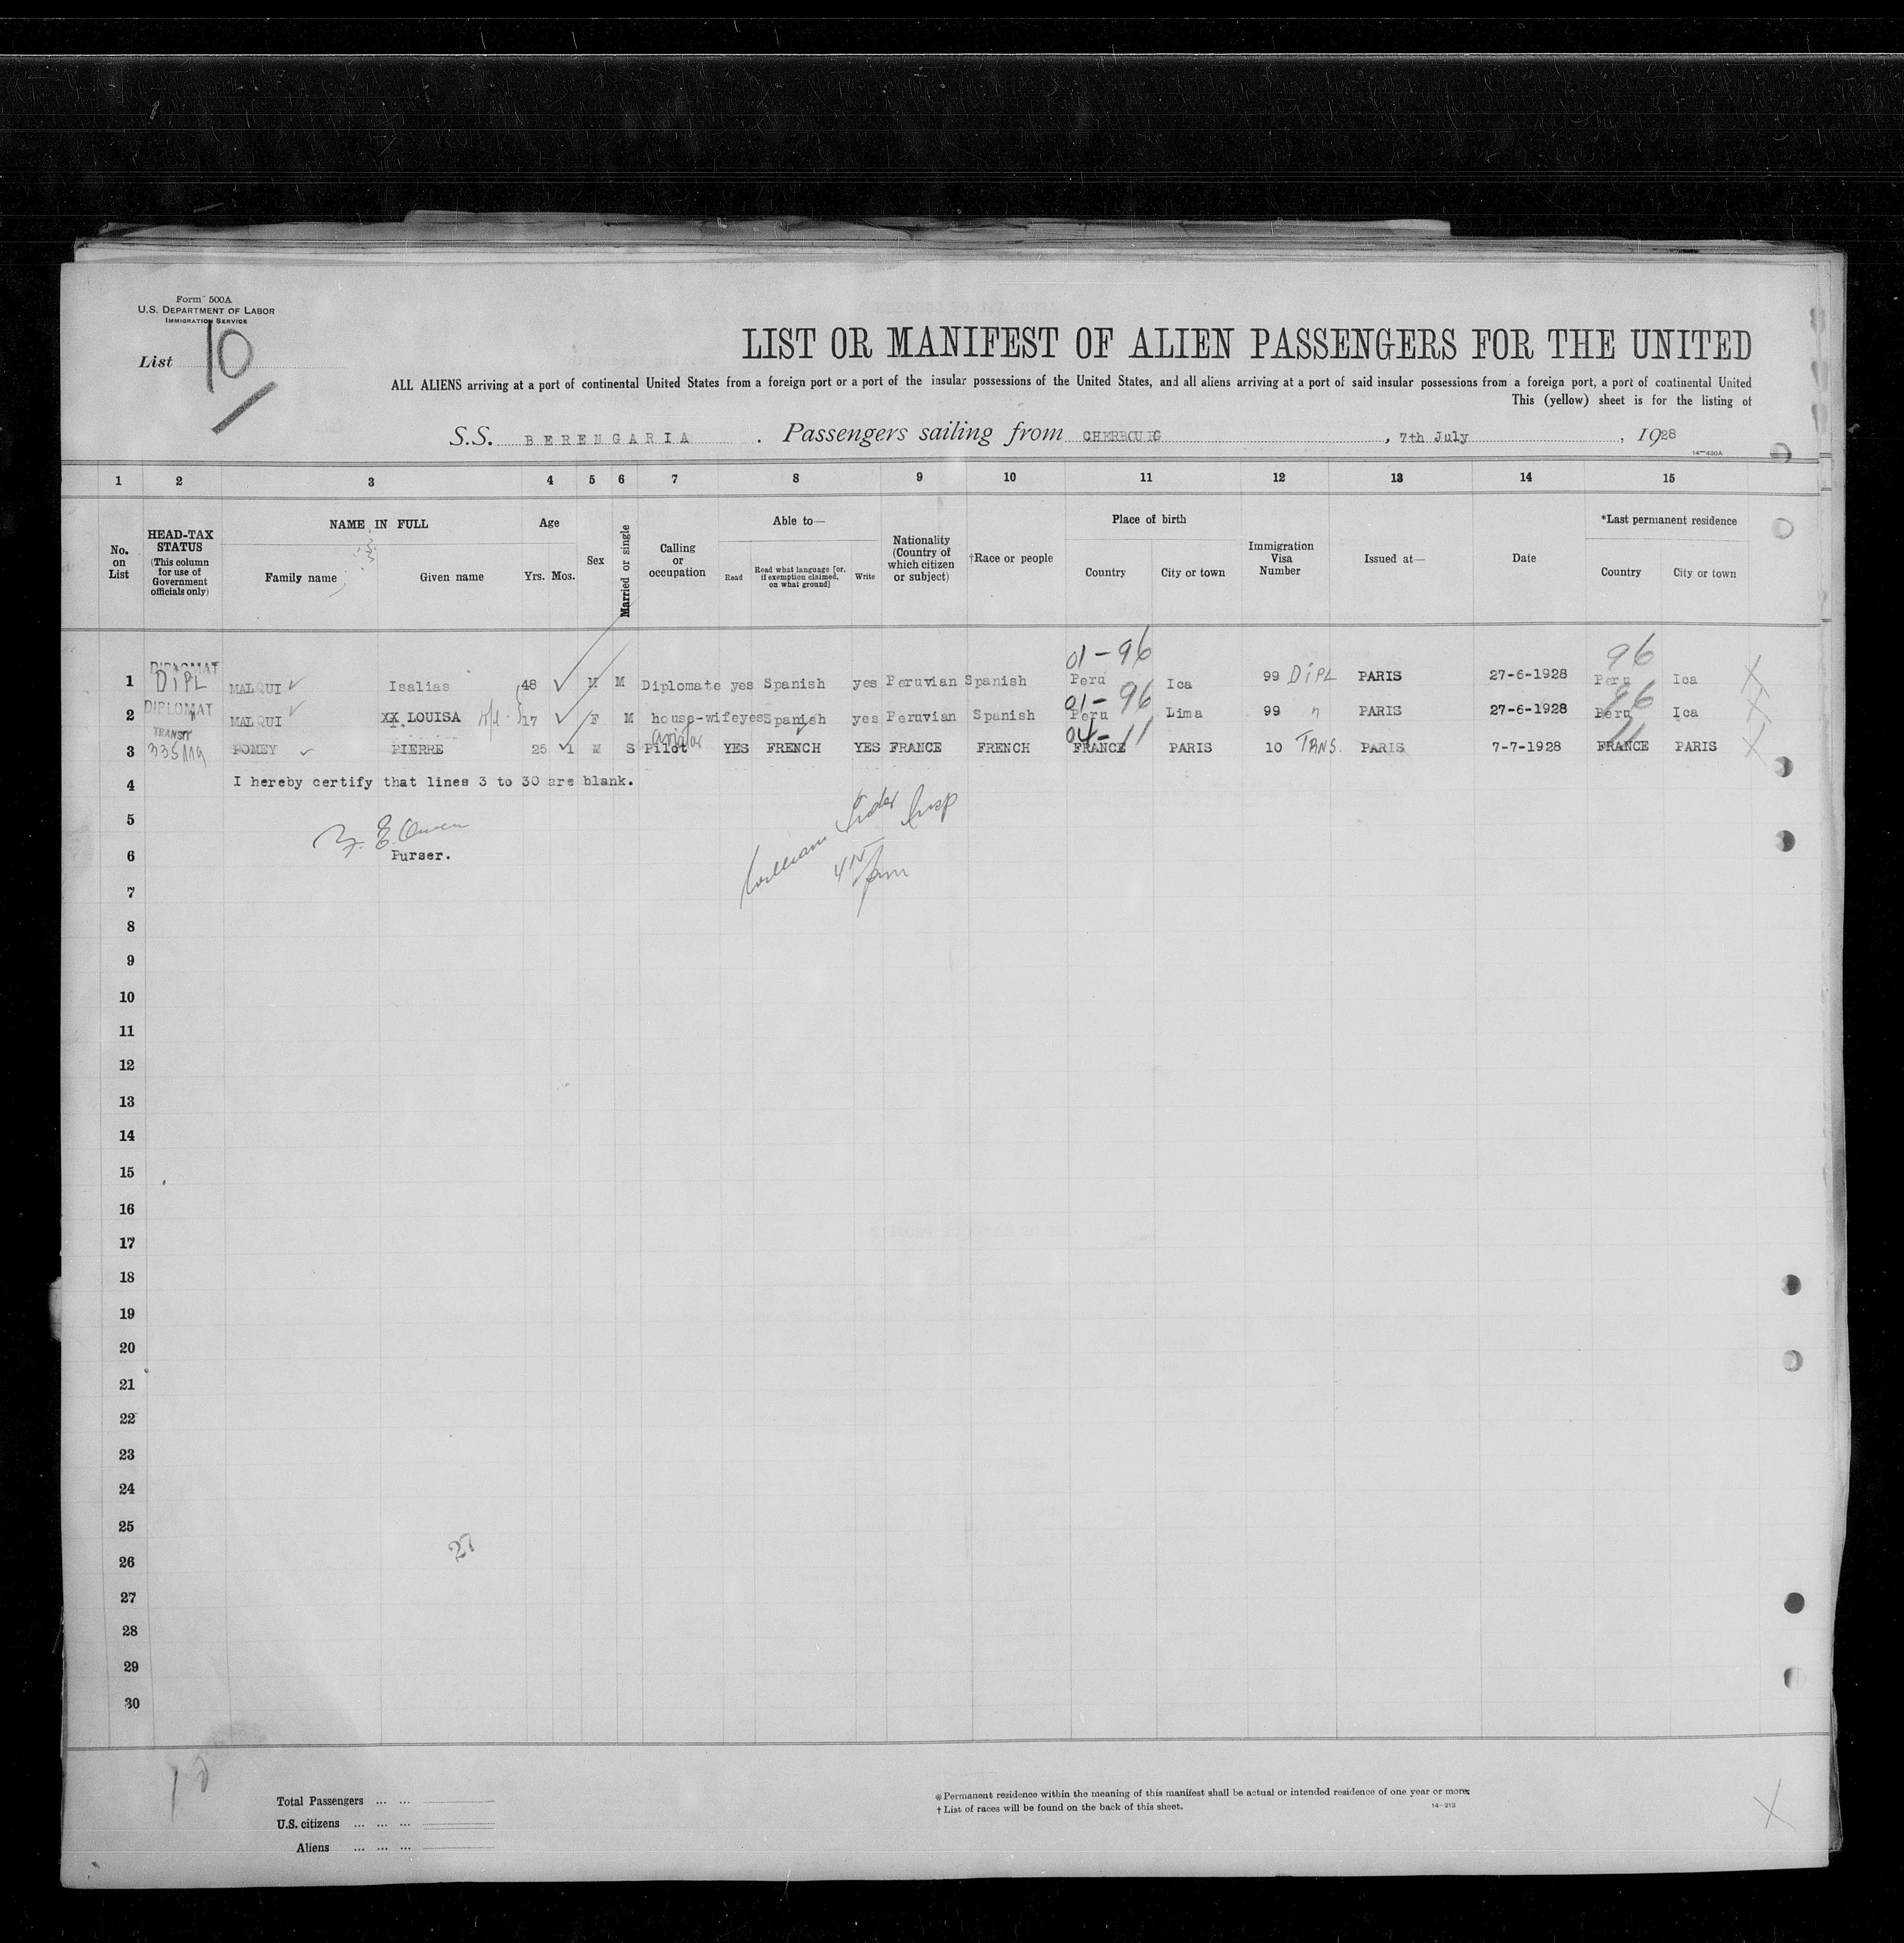 Form 500A
U.S. DEPARTMENT OF LABOR
IMMIGRATION SERVICE
List 10
LIST OR MANIFEST OF ALIEN PASSENGERS FOR THE UNITED
ALL ALIENS arriving at a port of continental United States from a foreign port or a port of the insular possessions of the United States, and all aliens arriving at a port of said insular possessions from a foreign port, a port of continental United
This (yellow) sheet is for the listing of
S.S. BERENGARIA. Passengers sailing from CHERBOURG, 7th July, 1928
14—430A
1 2 3 4 5 6 7 8 9 10 11 12 13 14 15
No. on List
HEAD-TAX STATUS (This column for use of Government officials only)
NAME IN FULL
Family name Given name
Age
Yrs. Mos.
Sex
Married or single
Calling or occupation
Able to—
Read
Read what language [or, if exemption claimed, on what ground]
Write
Nationality (Country of which citizen or subject)
†Race or people
Place of birth
Country City or town
Immigration Visa Number
Issued at—
Date
*Last permanent residence
Country City or town
01-96 96
DIPLOMAT
1 DIPL MALQUI Isalias 48 M M Diplomate yes Spanish yes Peruvian Spanish Peru Ica 99 DIPL PARIS 27-6-1928 Peru Ica
01-96 96
DIPLOMAT
2 MALQUI XX LOUISA 17 F M house-wife yes Spanish yes Peruvian Spanish Peru Lima 99 " PARIS 27-6-1928 Peru Ica
TRANSIT
Aviator 04-11 11
3 POMEY PIERRE 25 1 M S Pilot YES FRENCH YES FRANCE FRENCH FRANCE PARIS 10 TRNS. PARIS 7-7-1928 FRANCE PARIS
4 I hereby certify that lines 3 to 30 are blank.
5
6 Purser.
7
8
9
10
11
12
13
14
15
16
17
18
19
20
21
22
23
24
25
27
26
27
28
29
30
Total Passengers ... ...
U.S. citizens ... ... ...
Aliens ... ... ...
*Permanent residence within the meaning of this manifest shall be actual or intended residence of one year or more.
† List of races will be found on the back of this sheet.
14—213